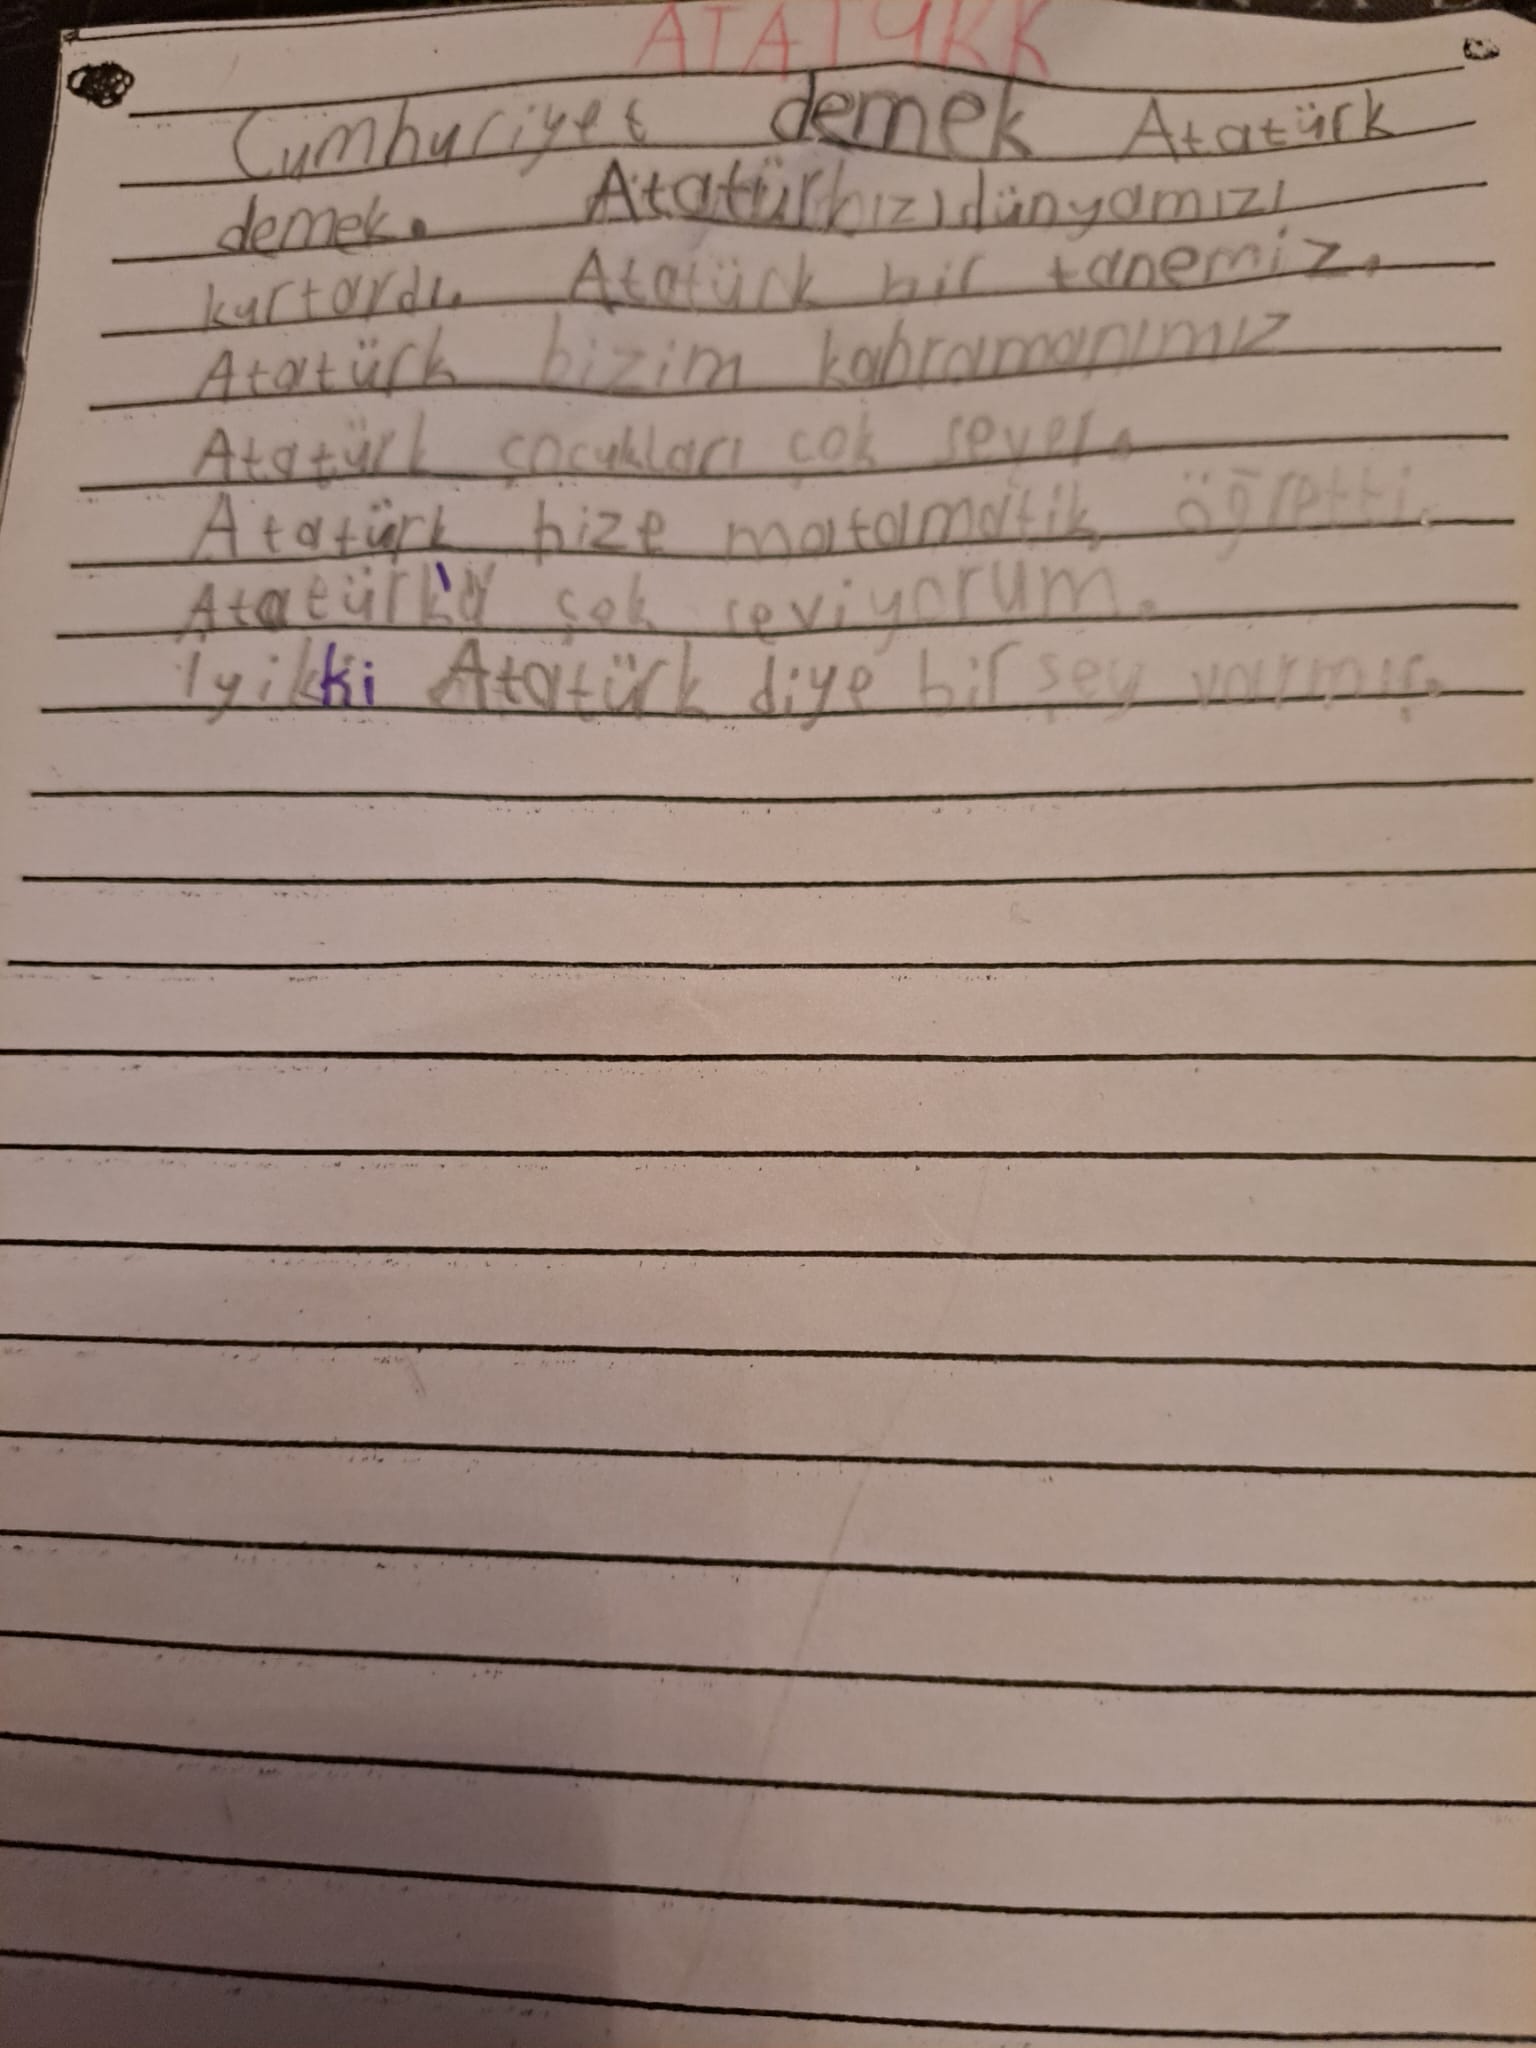 ATATÜRK
Cumhuriyet demek Atatürk
demek. Atatürk bizi dünyamızı
kurtardı. Atatürk bir tanemiz.
Atatürk bizim kahramanımız
Atatürk çocukları çok sever.
Atatürk bize matamatik öğretti.
Atatürk'ü çok seviyorum.
iyikki Atatürk diye bir şey varmış.